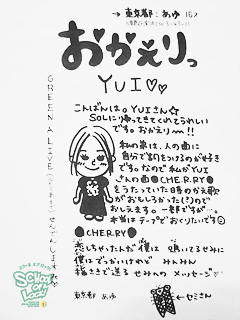 → 東京都：あゆ 15才
おかえりっ
YUI♡♡
GREEN A LIVE
こんばんは。YUIさん☆
SOLに帰ってきてくれてうれしい
です。おかえり〜!!
私の夢は、人の曲に
自分で詞をつけるのが好き
です。なので私がYUI
さんの曲●CHE.R.RY●
をうたっていた時のかえ歌
がおもしろかった(?)ので
おしえます。一部ですが…
本当はテープでおくりたいです
●CHE.R.RY●
恋しちゃったんだ 僕は 鳴いてるせみに
僕はでっかいけれど みんみん
指さきで送る せみへの メッセージ♡
東京都 あゆ
←セミさん
SCHOOL OF LOCK!